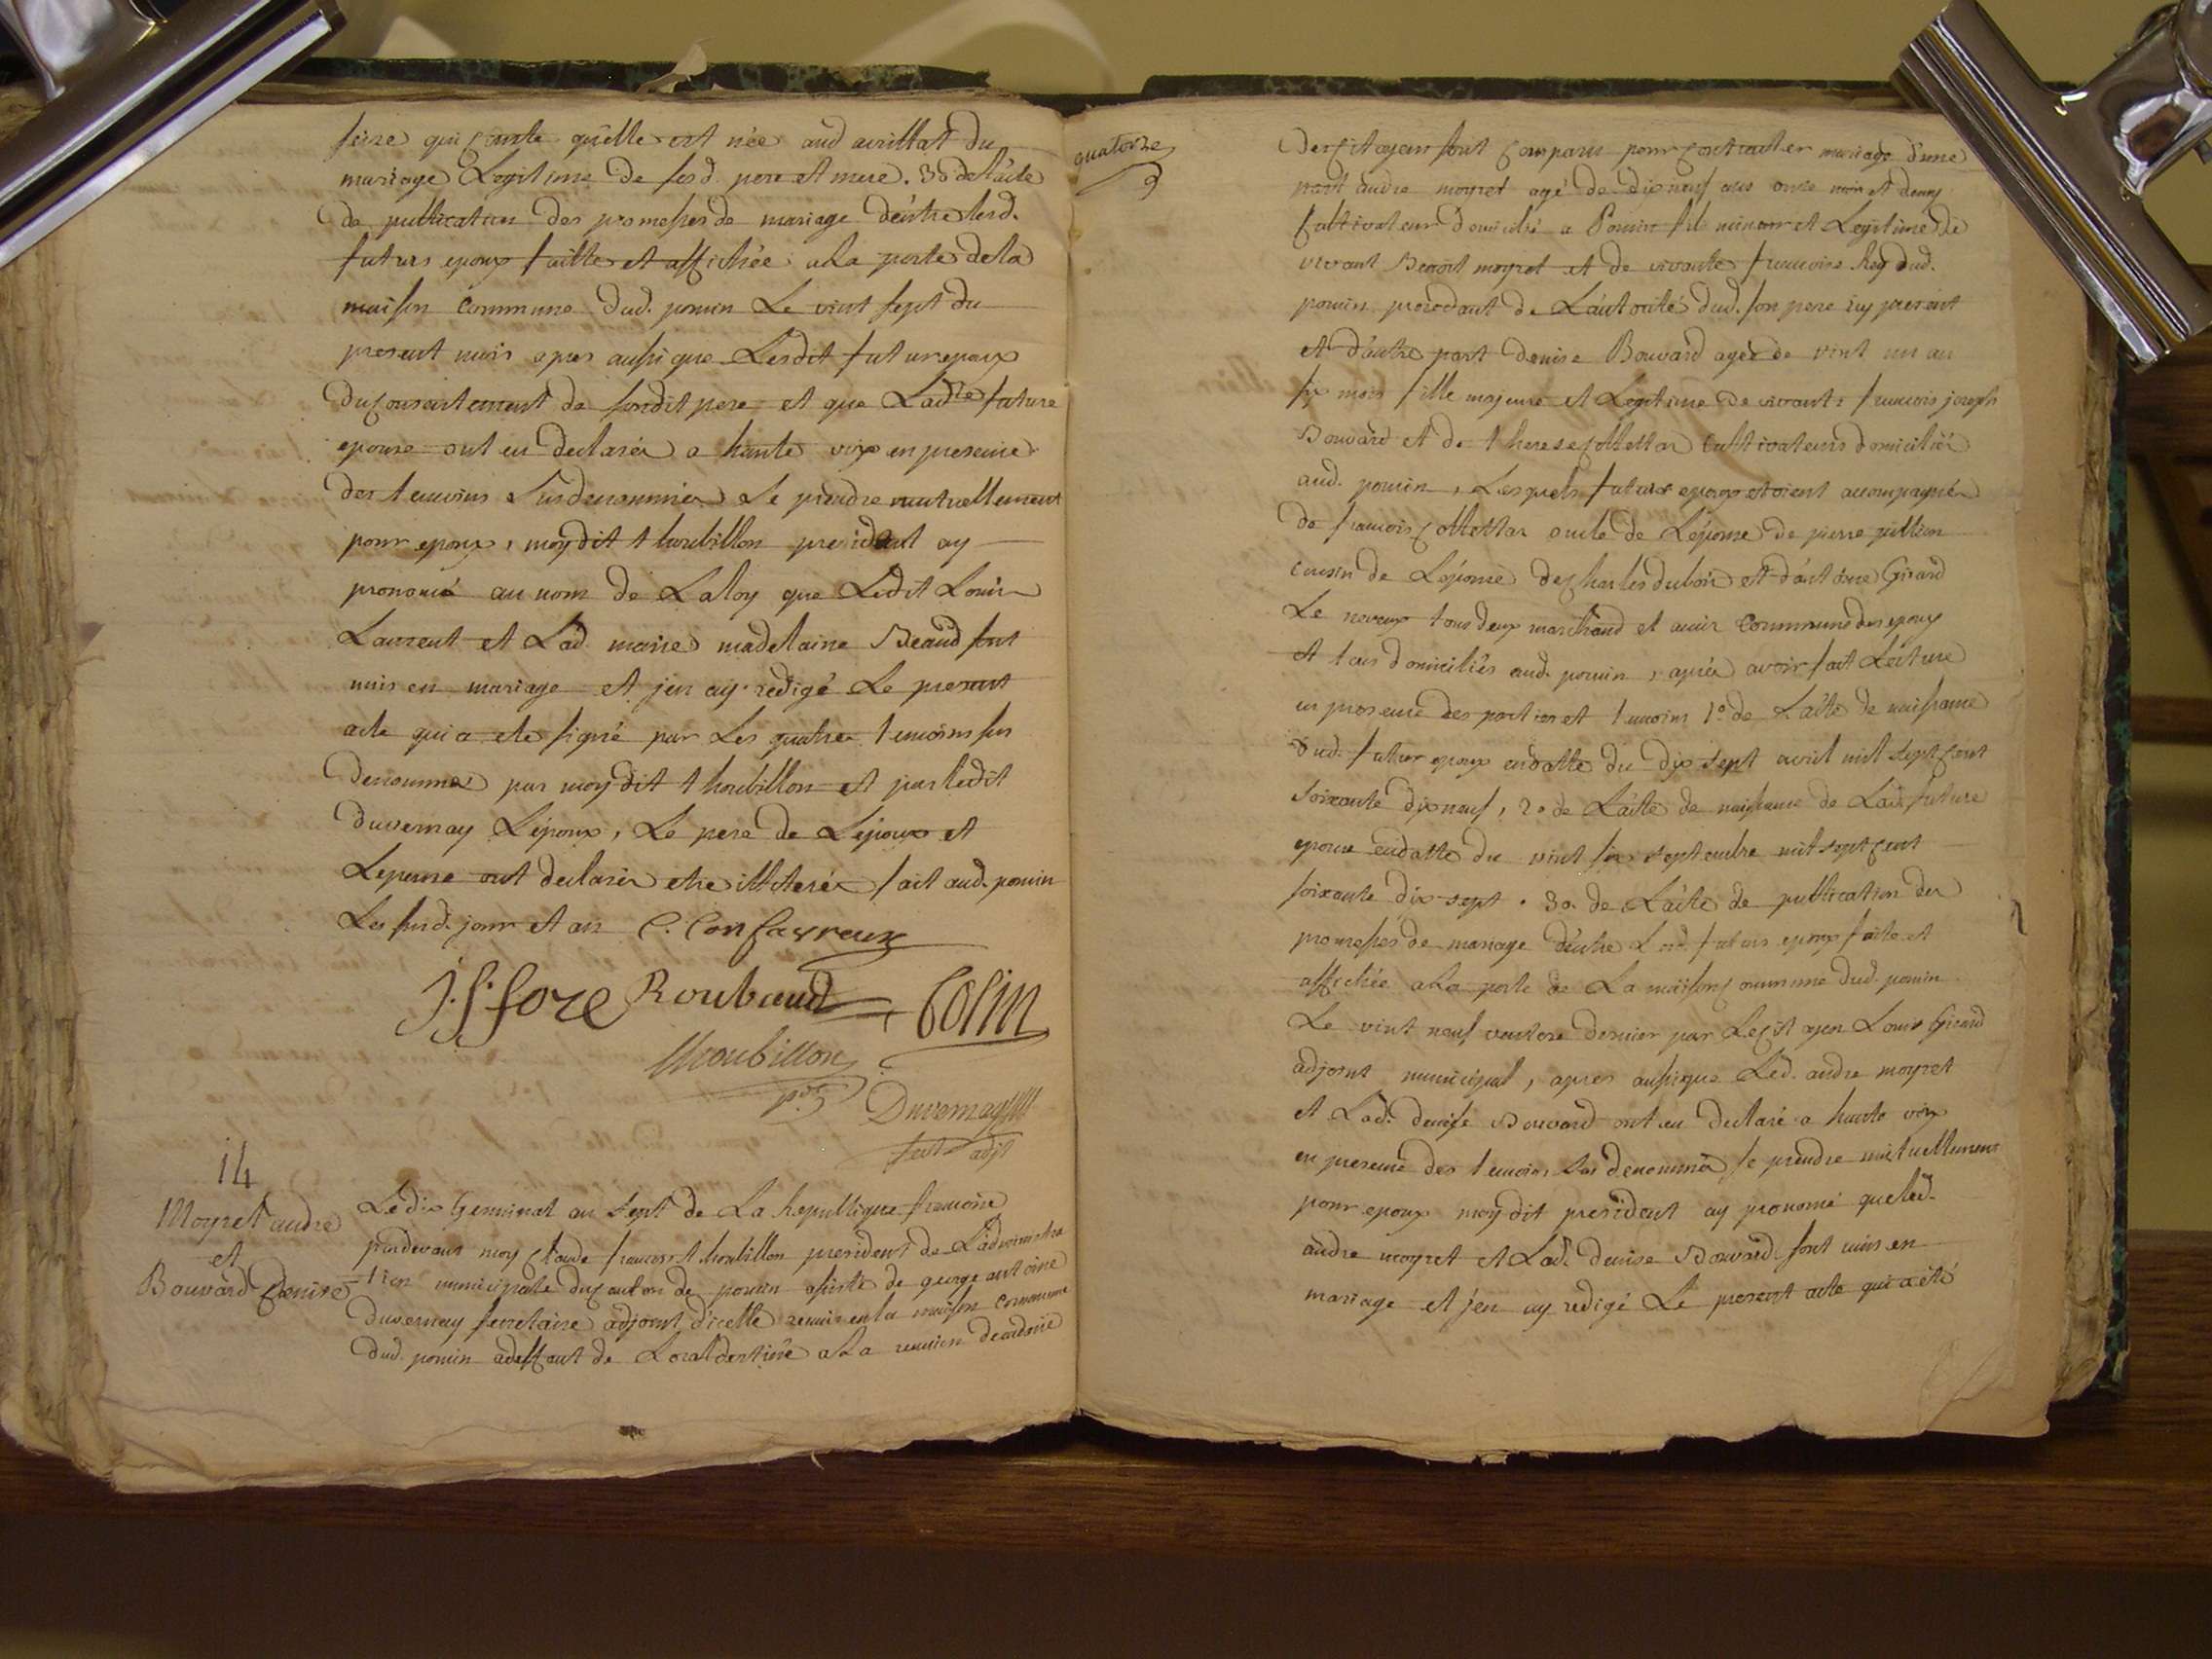 seize qui conste qu'elle est née aud arvillat du
mariage Legitime de sesd. pere et mere. 3o de L'acte
de publication des promesses de mariage d'entre lesd.
futurs epoux faitte et affichée a La porte de La
maison commune dud. poncin Le vint sept du
present mois apres aussi que Lesdit futur epoux
du consentement de sondit pere et que Ladte future
epouse ont eu declarés a haute voix en presence
des temoins susdenommés Se prendre mutuellement
pour epoux, moy dit thoubillon president ay
prononcé au nom de La loy que Ledit Louis
Laurent et Lad. marie madelaine Beaud sont
unis en mariage et j'en ay redigé Le present
acte qui a ete signé par Les quatre temoins sus
denommés par moy dit thoubillon et par ledit
Duvernay L'époux, Le pere de L'époux et
L'epouse ont declarés etre illiterés fait aud. poncin
Les susd. jour et an C. Confavreux
J. f. fore Roubaud Colin
thoubillon
pdt Duvernay
secre adjt
14
Moyret andré
et
Bouvard Denise
Le dix Germinal an Sept de La Republique francoise
pardevant moy Claude francois thoubillon president de L'administra
-tion municipale du canton de poncin assisté de george antoine
Duvernay secretaire adjoint d'icelle reunis en la maison commune
dud. poncin a deffaut de Local destiné a La reunion decadaire
quatorze
9
des citoyens sont comparus pour contracter mariage d'une
part andre moyret agé de dix neuf ans onze mois et demy
cultivateur domicilié a Poncin fils mineur et Legitime de
vivant Benoit moyret et de vivante francoise Rey dud.
poncin procedant de L'autorité dud. son pere icy present
et d'autre part denise Bouvard agée de vint un an
six mois fille majeure et Legitime de vivants francois joseph
Bouvard et de therese Collettar cultivateurs domiciliés
aud. poncin, Lesquels futurs epoux etoient accompagnés
de francois Collettar oncle de L'épouse de pierre jullien
cousin de L'épouse de Charles dubois et d'antoine Girard
Le neveux tous deux marchand et amis communs des epoux
et tous domiciliés aud. poncin, après avoir fait Lecture
en presence des parties et temoins 1o de L'acte de naissance
dud. futur epoux endatte du dix sept avril mil sept cent
soixante dix neuf, 2o de L'acte de naissance de Lad. future
epouse endatte du vint six septembre mil sept cent
soixante dix sept. 3o. de L'acte de publication des
promesses de mariage d'entre Lesd. futurs epoux faite et
affichée a La porte de La maison commune dud. poncin
Le vint neuf ventose dernier par Le citoyen Louis Girard
adjoint municipal, apres aussi que Led. andre moyret
et Lad. denise Bouvard ont eu declaré a haute voix
en presence des temoins sus denommés se prendre mutuellement
pour epoux moy dit president ay prononcé que led.
andre moyret et Lad. denise Bouvard sont unis en
mariage et j'en ay redigé Le present acte qui a été